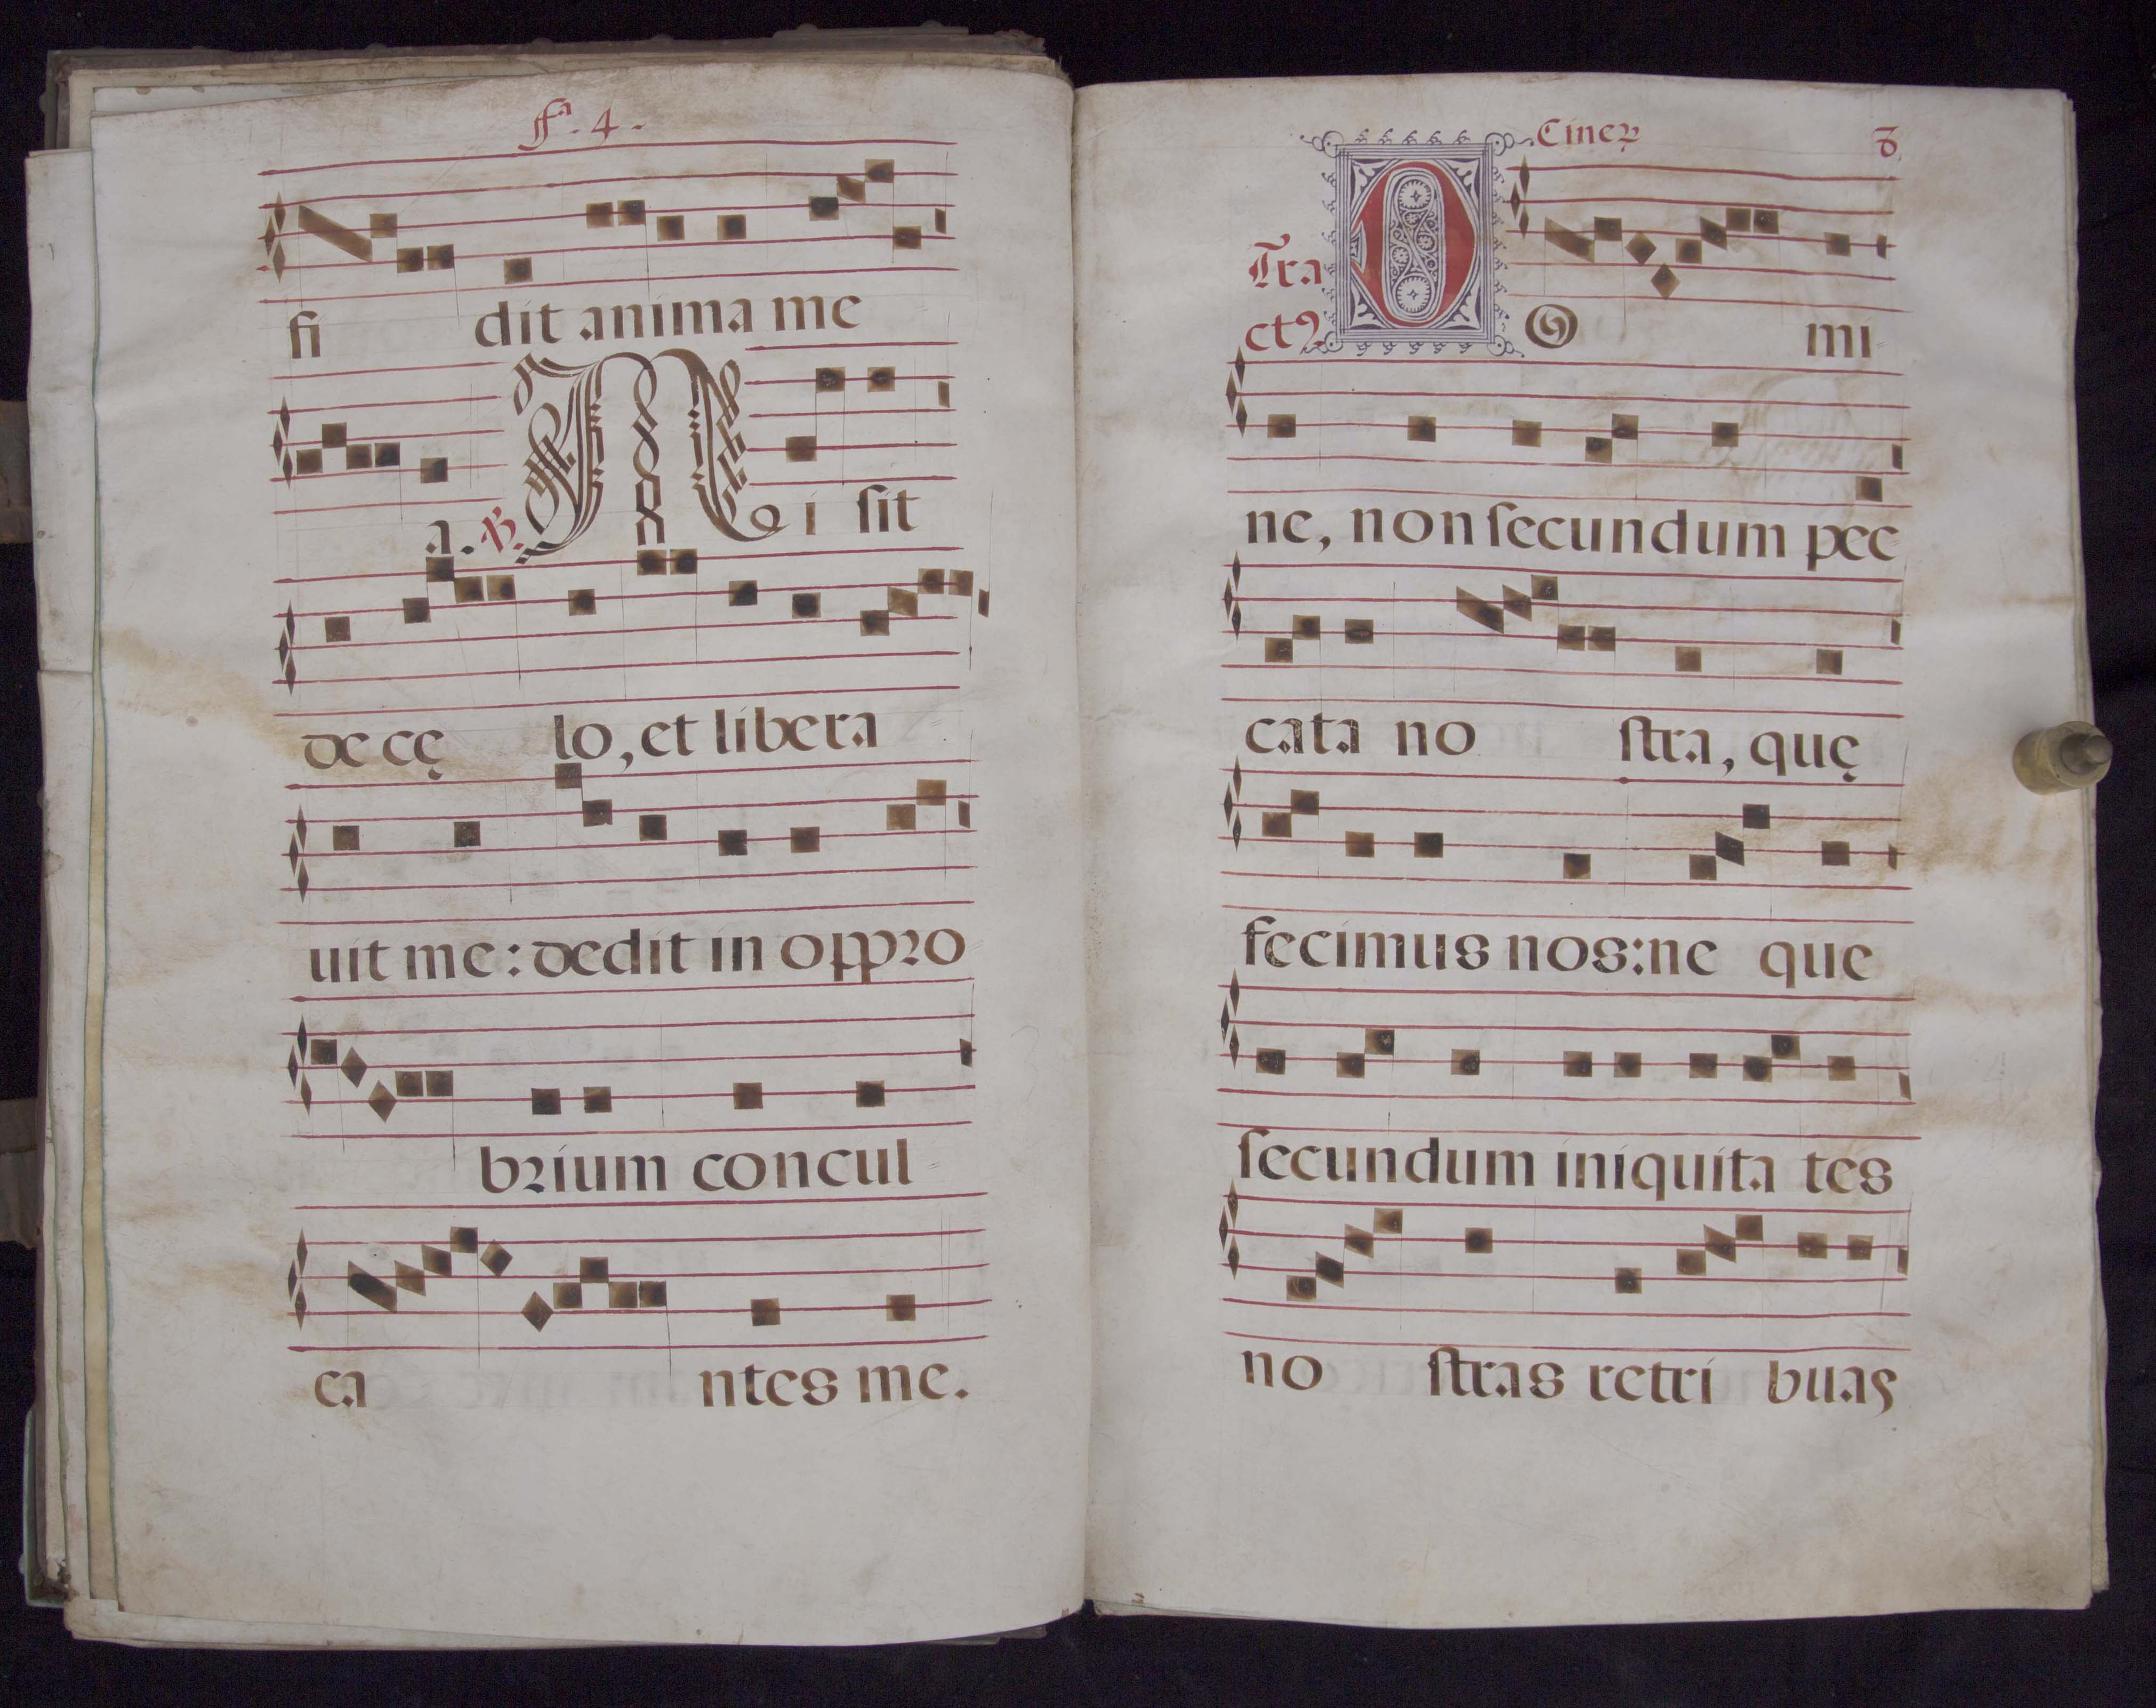 fª. 4.
fi dit anima me
a. ℟. Mi sit
de cę lo, et libera
uit me: dedit in oppro
brium concul
ca ntes me.
Cineꝝ 8
Tractꝰ DO mi
ne, non ſecundum pec
cata no ſtra, quę
fecimus nos: ne que
ſecundum iniquita tes
no ſtras retri buas